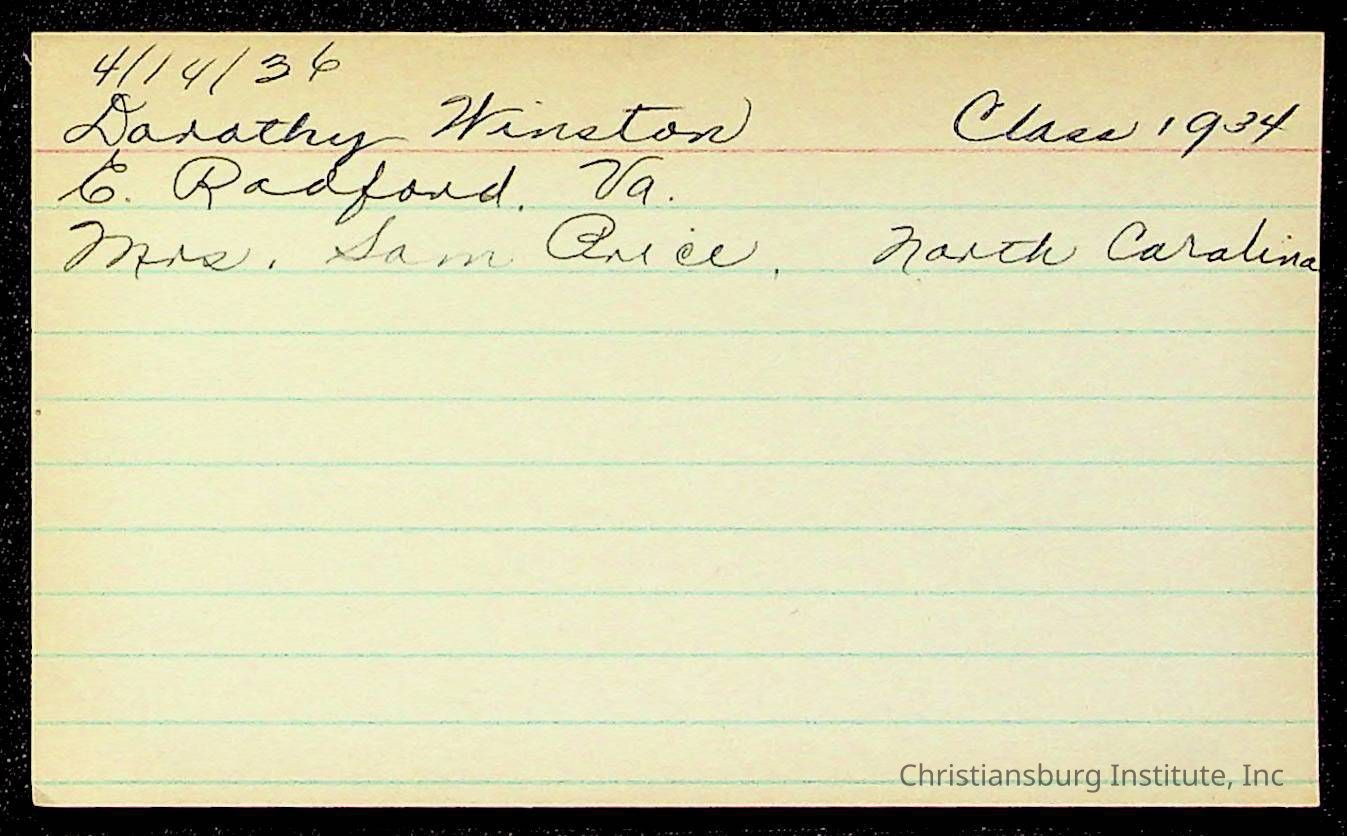 4/14/36
Dorothy Winston Class 1934
E. Radford, Va.
Mrs. Sam Price, North Carolina
Christiansburg Institute, Inc